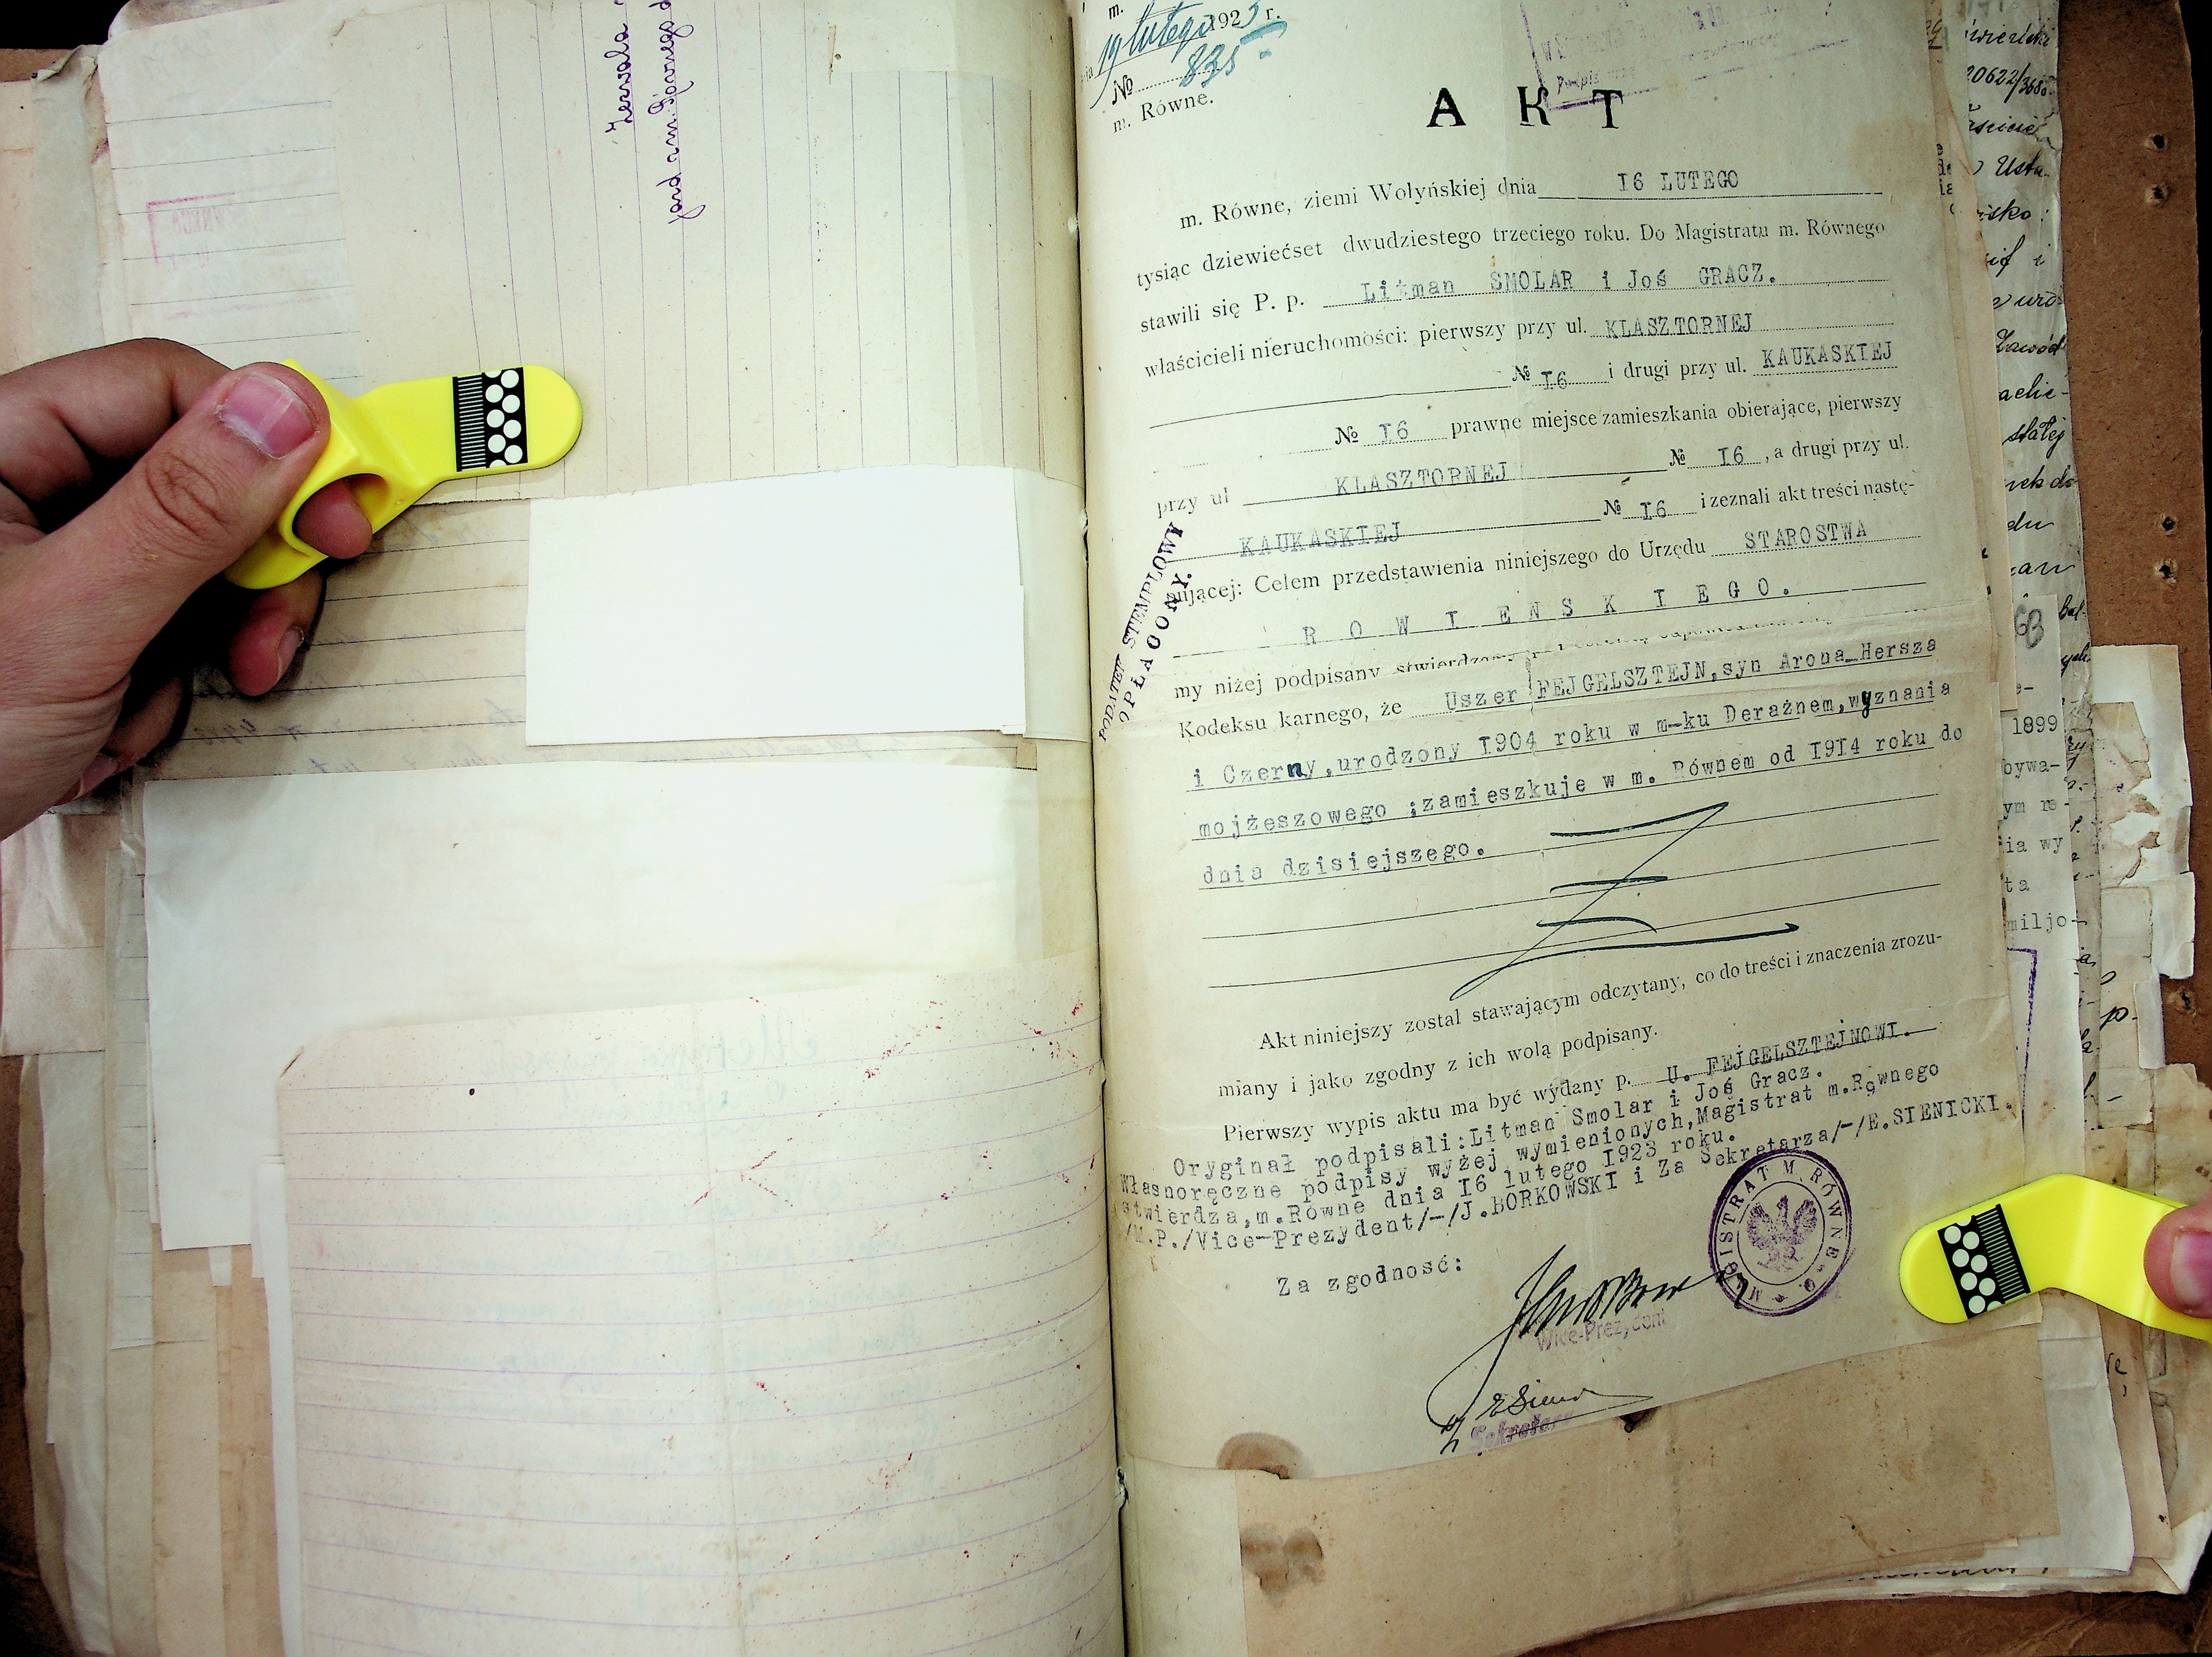 m.
19 lutego 1923 r.
№ 835
m. Równe.
AKT
m. Równe, ziemi Wołyńskiej dnia 16 LUTEGO
tysiąc dziewiećset dwudziestego trzeciego roku. Do Magistratu m. Równego
stawili się P. p. Litman SMOLAR i Joś GRACZ.
właścicieli nieruchomości: pierwszy przy ul. KLASZTORNEJ
№ 16 i drugi przy ul. KAUKASKIEJ
№ 16 prawne miejsce zamieszkania obierające, pierwszy
przy ul KLASZTORNEJ № 16, a drugi przy ul.
KAUKASKIEJ № 16 i zeznali akt treści nastę-
pującej: Celem przedstawienia niniejszego do Urzędu STAROSTWA
ROWIENSKIEGO.
my niżej podpisany stwierdzamy
Kodeksu karnego, że Uszer FEJGELSZTEJN, syn Arona Hersza
i Czerny, urodzony 1904 roku w m-ku Derażnem, wyznania
mojżeszowego ;zamieszkuje w m. Równem od 1914 roku do
dnia dzisiejszego.
Akt niniejszy został stawającym odczytany, co do treści i znaczenia zrozu-
miany i jako zgodny z ich wolą podpisany.
Pierwszy wypis aktu ma być wydany p. U. FEJGELSZTEJNOWI.
Oryginał podpisali: Litman Smolar i Joś Gracz.
Własnoręczne podpisy wyżej wymienionych, Magistrat m. Równego
stwierdza, m. Równe dnia 16 lutego 1923 roku.
/M.P./Vice-Prezydent/-/J.BORKOWSKI i Za Sekretarza/-/E.SIENICKI.
Za zgodność:
Wice-Prezydent
Sekretarz
PODATEK STEMPLOWY
OPŁACONY.
MAGISTRAT M. RÓWNEGO
20622/368
1899
bywa-
ym re-
ia wy
ta
miljo-